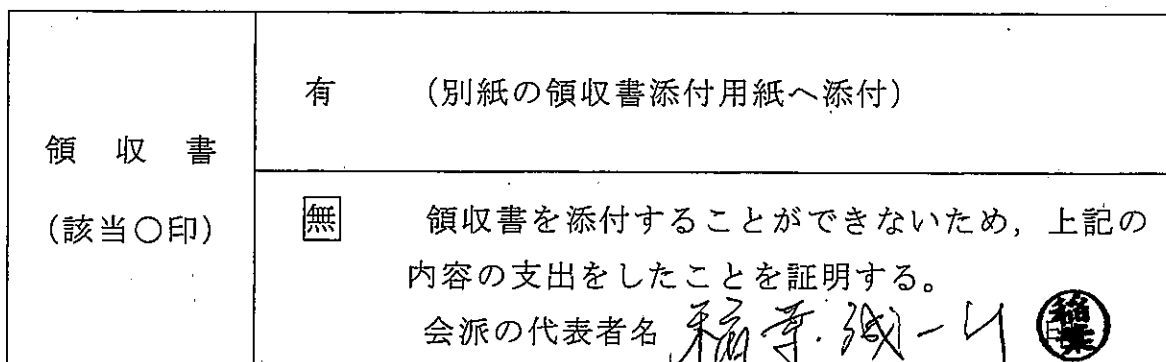 領 収 書
(該当○印)
有 (別紙の領収書添付用紙へ添付)
無 領収書を添付することができないため,上記の
内容の支出をしたことを証明する。
会派の代表者名 稲葉